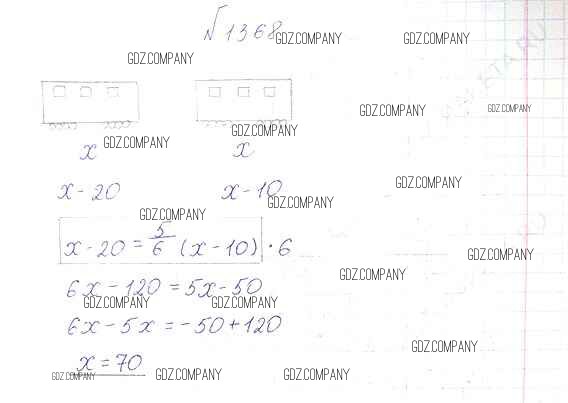 №1368
GDZ.COMPANY GDZ.COMPANY
GDZ.COMPANY
GDZ.COMPANY GDZ.COMPANY
GDZ.COMPANY
x GDZ.COMPANY x
x - 20 x - 10 GDZ.COMPANY
GDZ.COMPANY
GDZ.COMPANY
x - 20 = 5/6 (x - 10) · 6
GDZ.COMPANY
GDZ.COMPANY
6x - 120 = 5x - 50
GDZ.COMPANY GDZ.COMPANY
6x - 5x = -50 + 120
GDZ.COMPANY
x = 70
GDZ.COMPANY GDZ.COMPANY GDZ.COMPANY